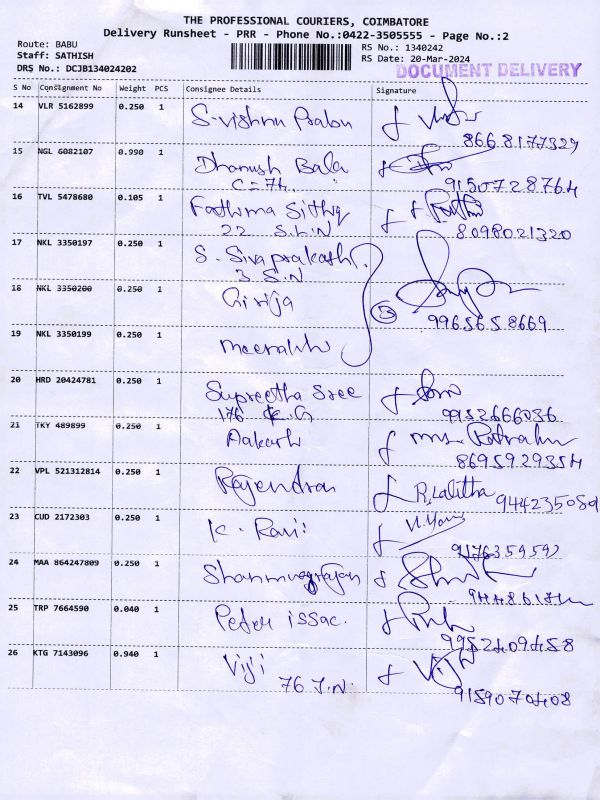 THE PROFESSIONAL COURIERS, COIMBATORE
Delivery Runsheet - PRR - Phone No.:0422-3505555 - Page No.:2
Route: BABU
Staff: SATHISH
DRS No.: DCJB134024202
RS No.: 1340242
RS Date: 20-Mar-2024
DOCUMENT DELIVERY
S No Consignment No Weight PCS Consignee Details Signature
14 VLR 5162899 0.250 1 S-Vishnu Prabu
8668177329
15 NGL 6082107 0.990 1 Dhanush Bala
C-74. 9150728764
16 TVL 5478680 0.105 1 Fathima Sithiq
22 S.L.N 8098021320
17 NKL 3350197 0.250 1 S. Siva prakash.
3 S.N
18 NKL 3350200 0.250 1 Girija
3 9965658669
19 NKL 3350199 0.250 1
20 HRD 20424781 0.250 1 Supreetha Sree
176 9952666036
21 TKY 489899 0.250 1 Aakash
8695929354
22 VPL 521312814 0.250 1 Rajendran R.Lalitha 944235089
23 CUD 2172303 0.250 1 K. Ravi
9176359592
24 MAA 864247809 0.250 1 Shanmugrajan
25 TRP 7664590 0.040 1 Peter issac.
9952409458
26 KTG 7143096 0.940 1 Viji
76 J.N. 9159070408